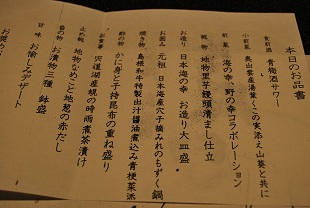 本日のお品書
食前酒 青梅酒サワー
小前菜 奥出雲産湯葉 この実添え山葵と共に
前菜 海の幸、野の幸コラボレーション
椀物 地物里芋饅頭清まし仕立
お造り 日本海の幸 お造り大皿盛
お囲み 元祖 日本海産穴子摘みれのもずく鍋
焼き物 島根和牛特製出汁醤油煮込み青梗菜添
酢の物 かに身と子持昆布の重ね盛り
お食事 宍道湖産蜆の時雨煮茶漬け
止め椀 地物なめこと地葱の赤だし
香の物 お漬物三種 鉢盛
甘味 お愉しみデザート